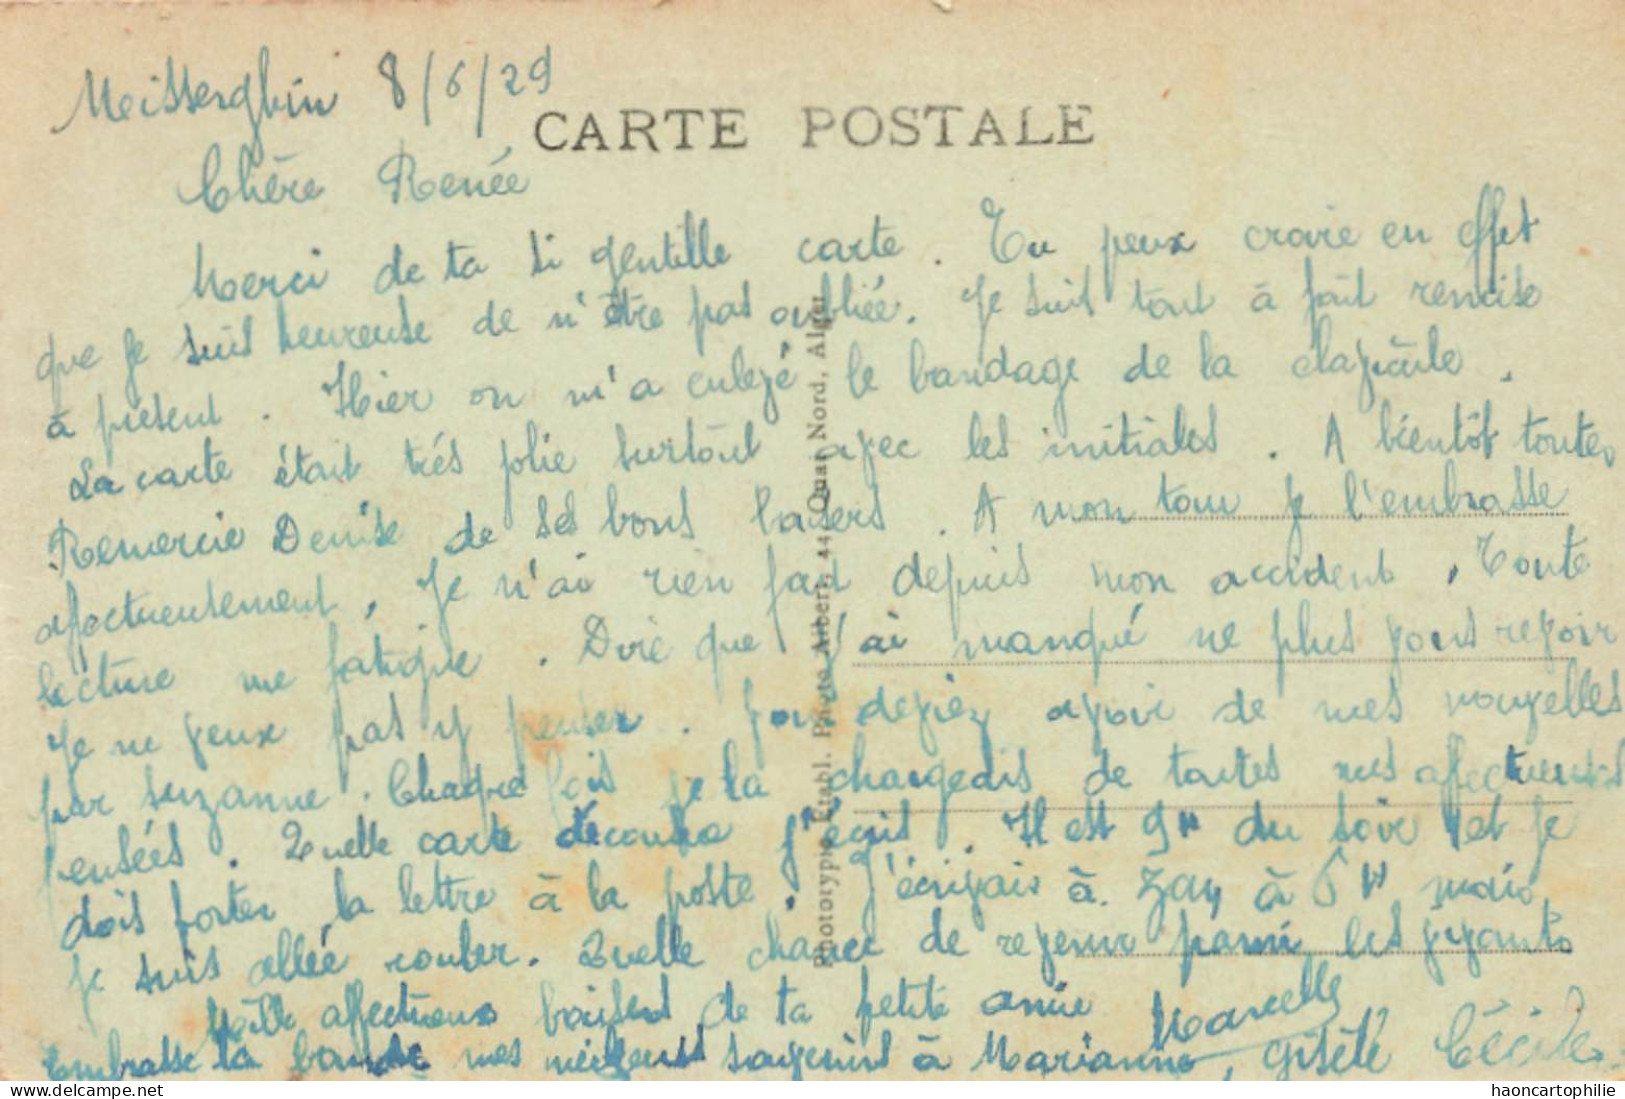 Meisserghin 8/6/29
CARTE POSTALE
Chère Renée
Merci de ta si gentille carte. Tu peux croire en effet
que je suis heureuse de n'être pas oubliée. Je suis tout à fait remise
à présent. Hier on m'a enlevé le bandage de la clavicule.
La carte était très jolie surtout avec les initiales. A bientôt toutes
Remercie Denise de ses bons baisers. A mon tour je l'embrasse
affectueusement, Je n'ai rien fait depuis mon accident, Toute
lecture me fatigue. Dire que j'ai manqué ne plus vous revoir
Je ne veux pas y penser. Vous deviez avoir de mes nouvelles
par Suzanne. Chaque fois je la chargeais de toutes mes affectueuses
pensées. Quelle carte décousue j'écris. Il est 9h du soir et je
dois porter la lettre à la poste. J'écrivais à à 5h mais
je suis allée rouler. Quelle chance de revenir parmi les vivants
Mille affectueux baisers de ta petite amie Marcelle
Embrasse la bande mes meilleurs souvenirs à Marianne, Gisèle Cécile.
Phototypie Établ. Photo Albert, 44 Quai Nord, Alger
haoncartophilie